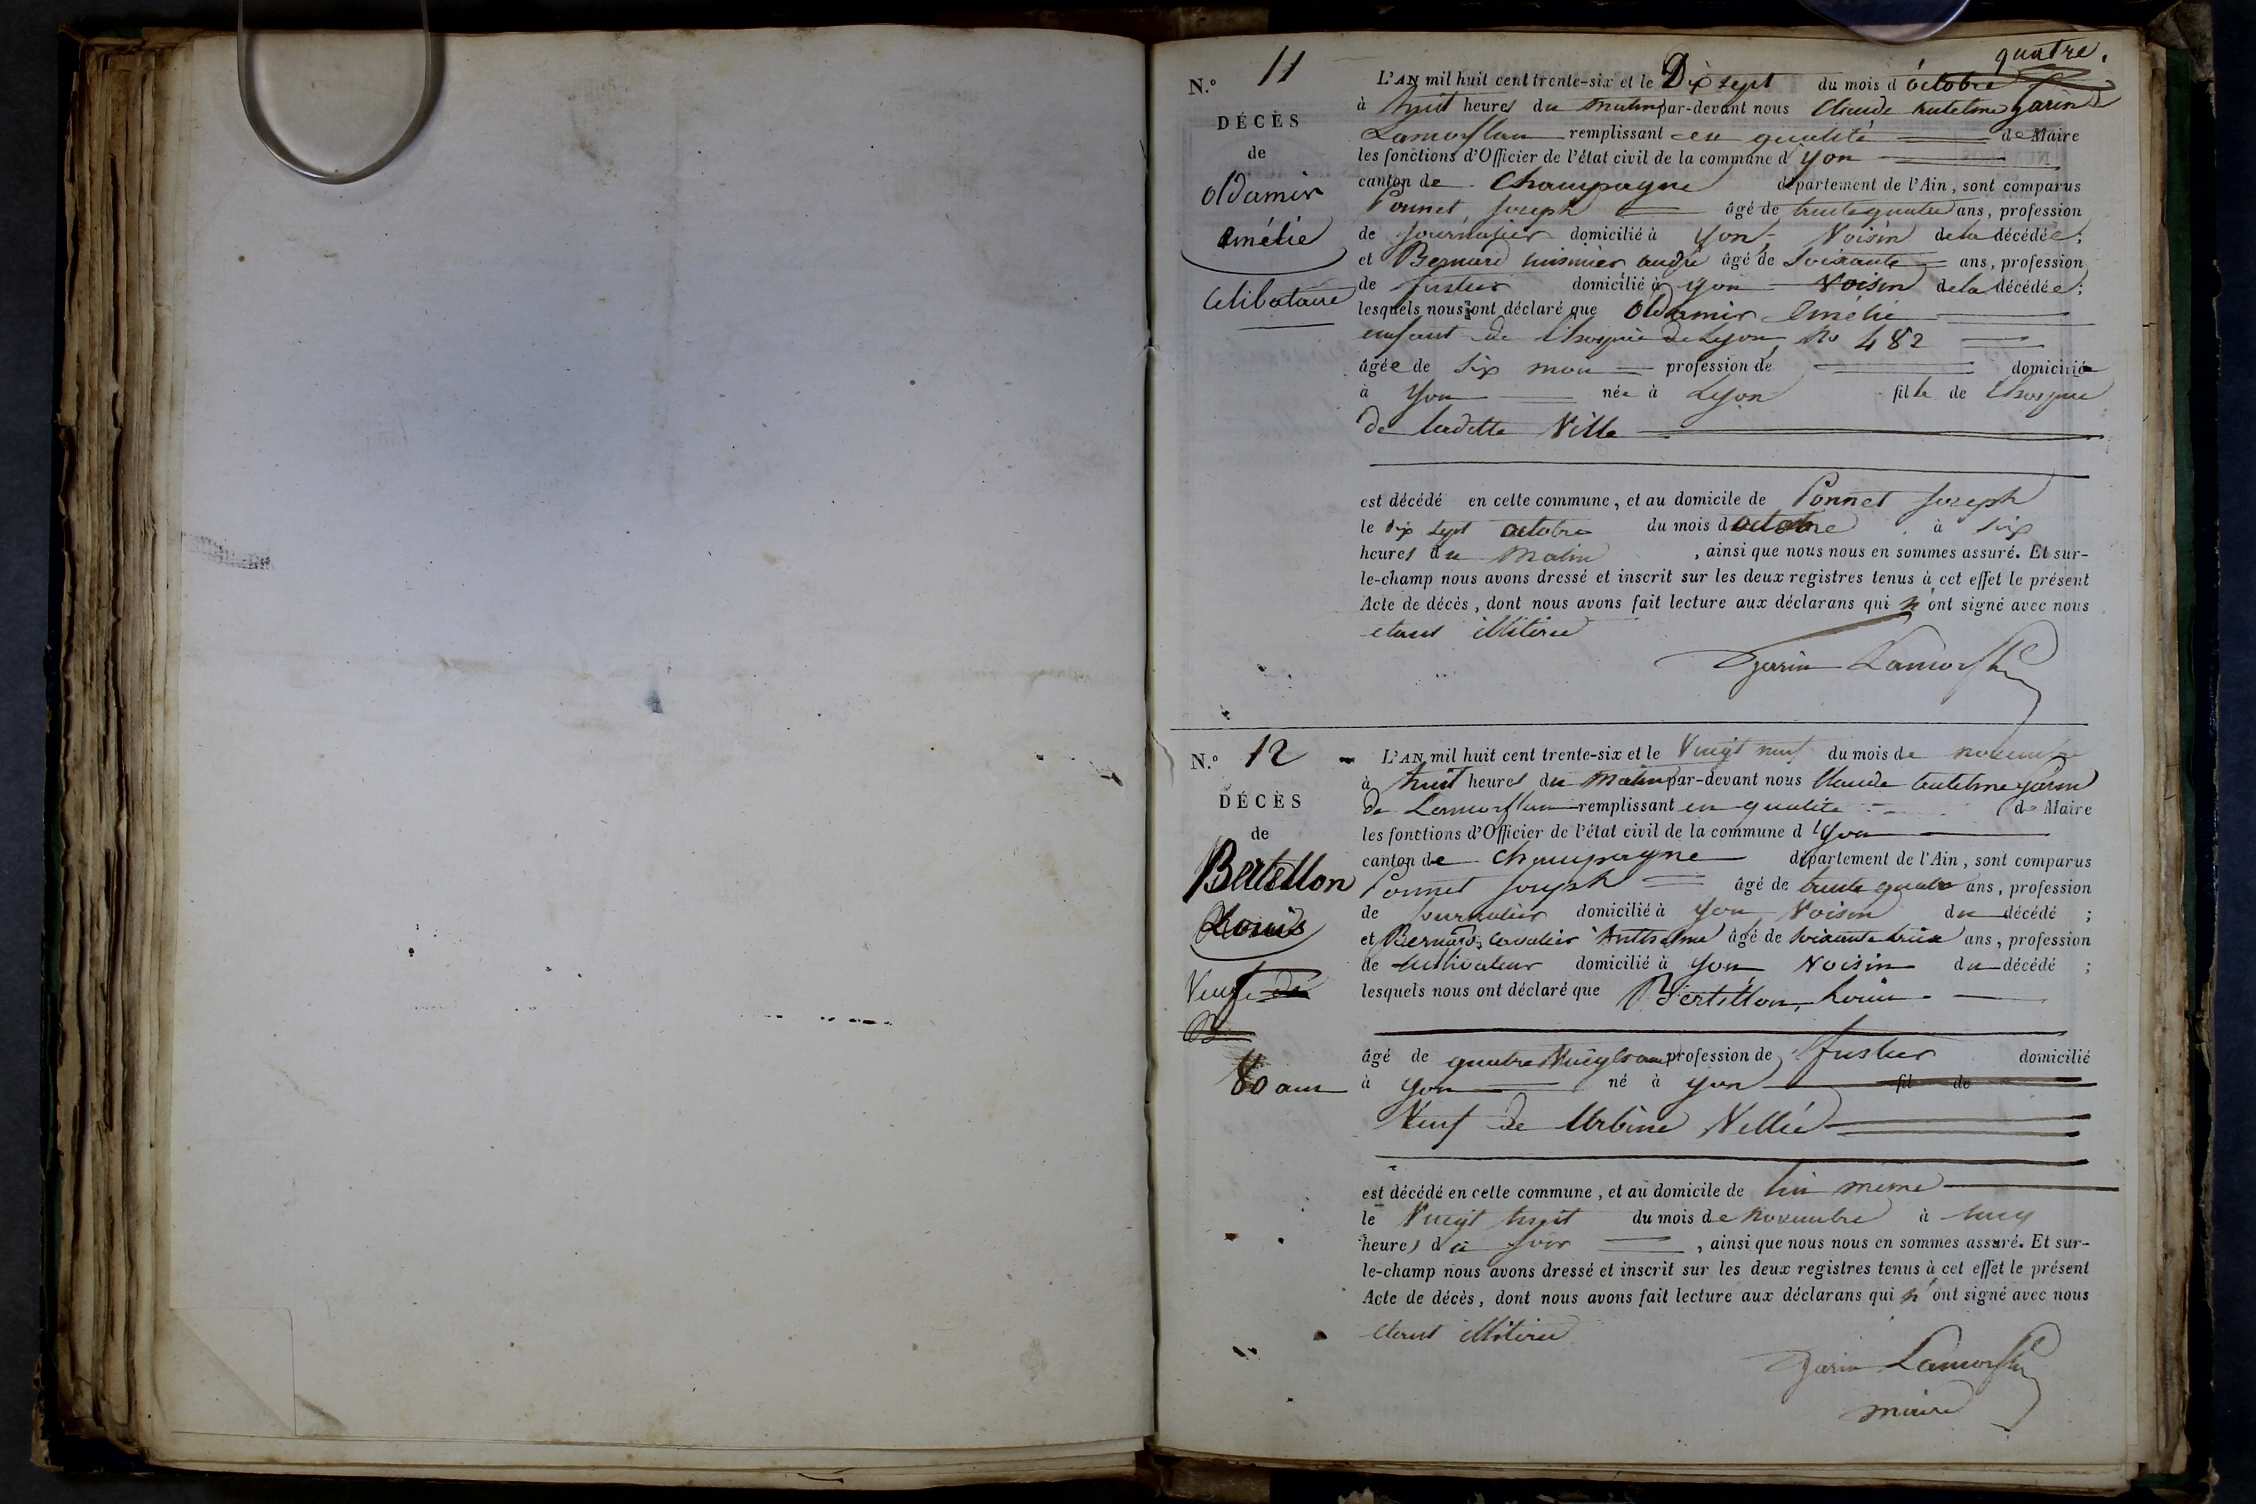 quatre.
N.º 11
DÉCÈS
de
Oldamir
Amélie
Celibataire
L'AN mil huit cent trente-six et le Dix sept du mois d'octobre
à huit heures du matin par-devant nous Claude Antelme garin
remplissant en qualité de Maire
les fonctions d'Officier de l'état civil de la commune d'yon
canton de Champagne département de l'Ain, sont comparus
Ponnet Joseph âgé de trente quatre ans, profession
de journalier domicilié à yon, Voisin de la décédée;
et Bernard andré âgé de Soixante ans, profession
de fustier domicilié à yon Voisin de la décédée;
lesquels nous ont déclaré que Oldamir Amélie
enfant de l'hospice de Lyon, No 482
âgée de Six mois profession de domiciliée
à yon née à Lyon fille de l'hospice
de ladette Ville
est décédé en cette commune, et au domicile de Ponnet Joseph
le dix sept octobre du mois d'octobre à six
heures du Matin, ainsi que nous nous en sommes assuré. Et sur-
le-champ nous avons dressé et inscrit sur les deux registres tenus à cet effet le présent
Acte de décès, dont nous avons fait lecture aux déclarans qui n'ont signé avec nous
etant illitéré
Garin
N.º 12
DÉCÈS
de
Bertillon
Louis
Veuf de
80 ans
L'AN mil huit cent trente-six et le Vingt neuf du mois de novembre
à huit heures du Matin par-devant nous Claude Antelme garin
de remplissant en qualité de Maire
les fonctions d'Officier de l'état civil de la commune d'yon
canton de Champagne département de l'Ain, sont comparus
Ponnet Joseph âgé de trente quatre ans, profession
de journalier domicilié à yon, Voisin du décédé;
et Bernard, cavalier Anthelme âgé de soixante treize ans, profession
de cultivateur domicilié à yon, Voisin du décédé;
lesquels nous ont déclaré que Bertillon, Louis
âgé de quatre Vingt ans profession de fustier domicilié
à yon né à yon fil de
Veuf de Urbine Vellié
est décédé en cette commune, et au domicile de lui même
le Vingt huit du mois de Novembre à cinq
heures du soir, ainsi que nous nous en sommes assuré. Et sur-
le-champ nous avons dressé et inscrit sur les deux registres tenus à cet effet le présent
Acte de décès, dont nous avons fait lecture aux déclarans qui n'ont signé avec nous
etant illitéré
Garin
maire